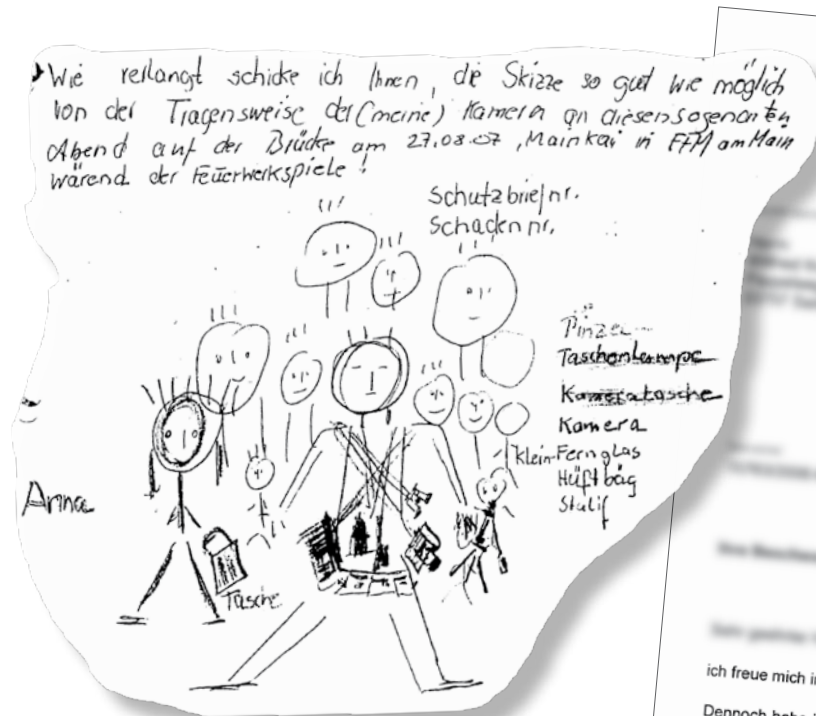 Wie verlangt schicke ich Ihnen, die Skizze so gut wie möglich
von der Tragensweise der (meine) Kamera an diesen sogenanten
Abend auf der Brücke am 27.08.07, Mainkai in FFM am Main
wärend der Feuerwerkspiele!
Schutzbriefnr.
Schaden nr.
Taschenlampe
Kameratasche
Kamera
klein-Fernglas
Hüftbag
Stativ
Tasche
ich freue mich
Dennoch habe